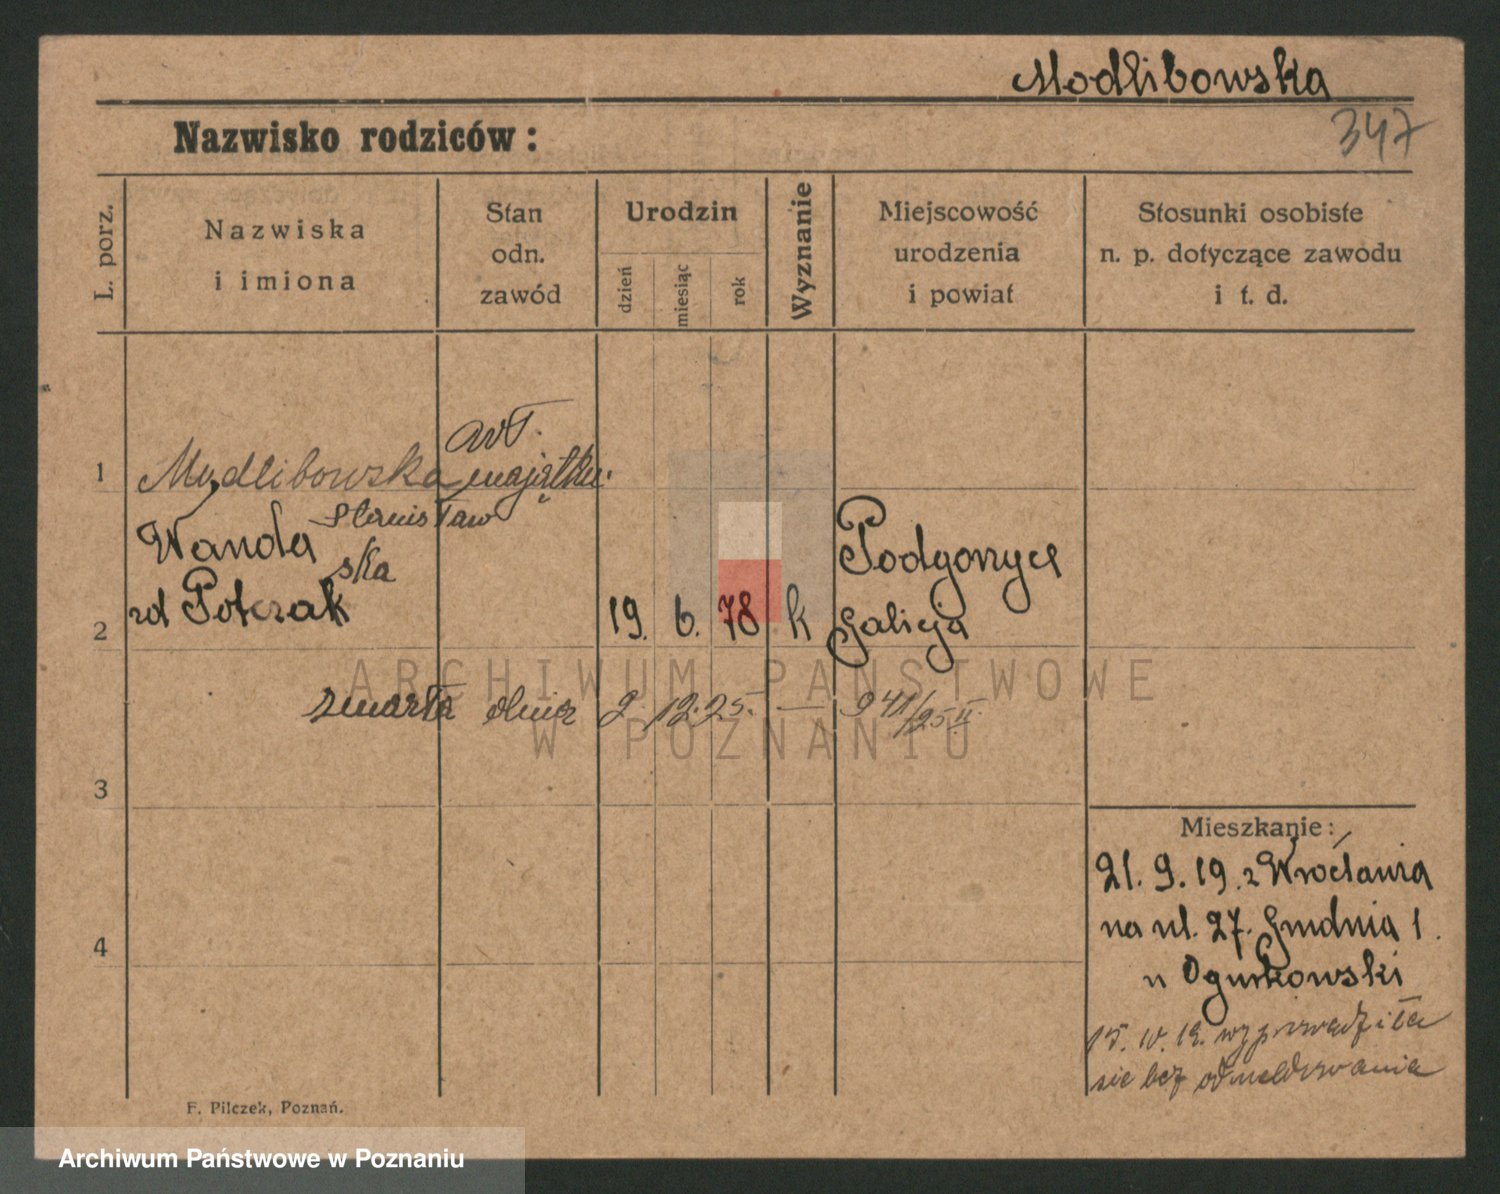 Modlibowska
347
Nazwisko rodziców:
L. porz.
Nazwiska
i imiona
Stan
odn.
zawód
Urodzin
dzień
miesiąc
rok
Wyznanie
Miejscowość
urodzenia
i powiat
Stosunki osobiste
n. p. dotyczące zawodu
i t. d.
1
Modlibowska
majątku
Stanisław
Wanda
ska
2
rd Potczak 19. 6. 78 k
Galicja
ARCHIWUM PAŃSTWOWE
zmarła dnia 2 12.25. — 941/25 II
W POZNANIU
3
4
Mieszkanie:
21. 9. 19. z Wrocławia
na ul. 27. Grudnia 1.
u Ogurkowski
wyprowadziła
sie bez odmeldowania
F. Pilczek, Poznań.
Archiwum Państwowe w Poznaniu